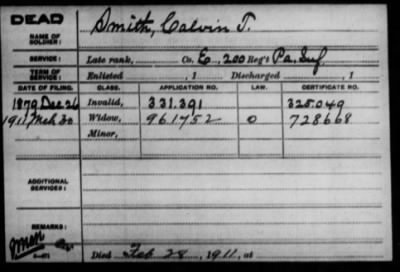 DEAD
NAME OF SOLDIER: Smith, Calvin T.
SERVICE: Late rank, Co. E, 200 Reg't Pa. Inf.
TERM OF SERVICE: Enlisted , 1 Discharged , 1
DATE OF FILING. CLASS. APPLICATION NO. LAW. CERTIFICATE NO.
1879 Dec 26 Invalid, 331.391 325.049
1911 Mch 30 Widow, 961752 0 728668
Minor,
ADDITIONAL SERVICES:
REMARKS:
Died Feb 28, 1911, at